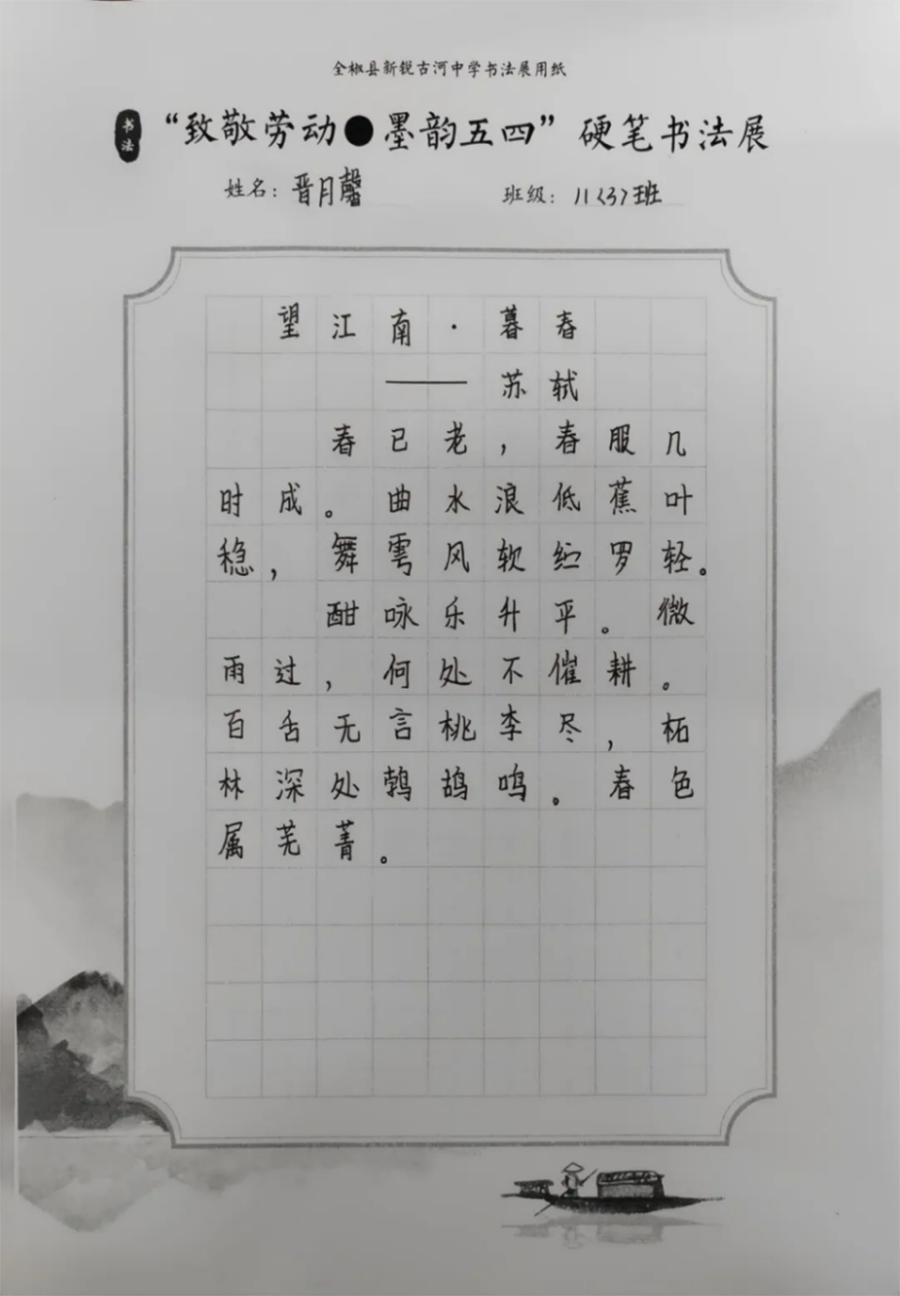 全椒县新锐古河中学书法展用纸
书法
“致敬劳动●墨韵五四”硬笔书法展
姓名：晋月馨 班级：八（3）班
望江南·暮春
——苏轼
春已老，春服几
时成。曲水浪低蕉叶
稳，舞雩风软纻罗轻。
酣咏乐升平。微
雨过，何处不催耕。
百舌无言桃李尽，柘
林深处鹁鸪鸣。春色
属芜菁。